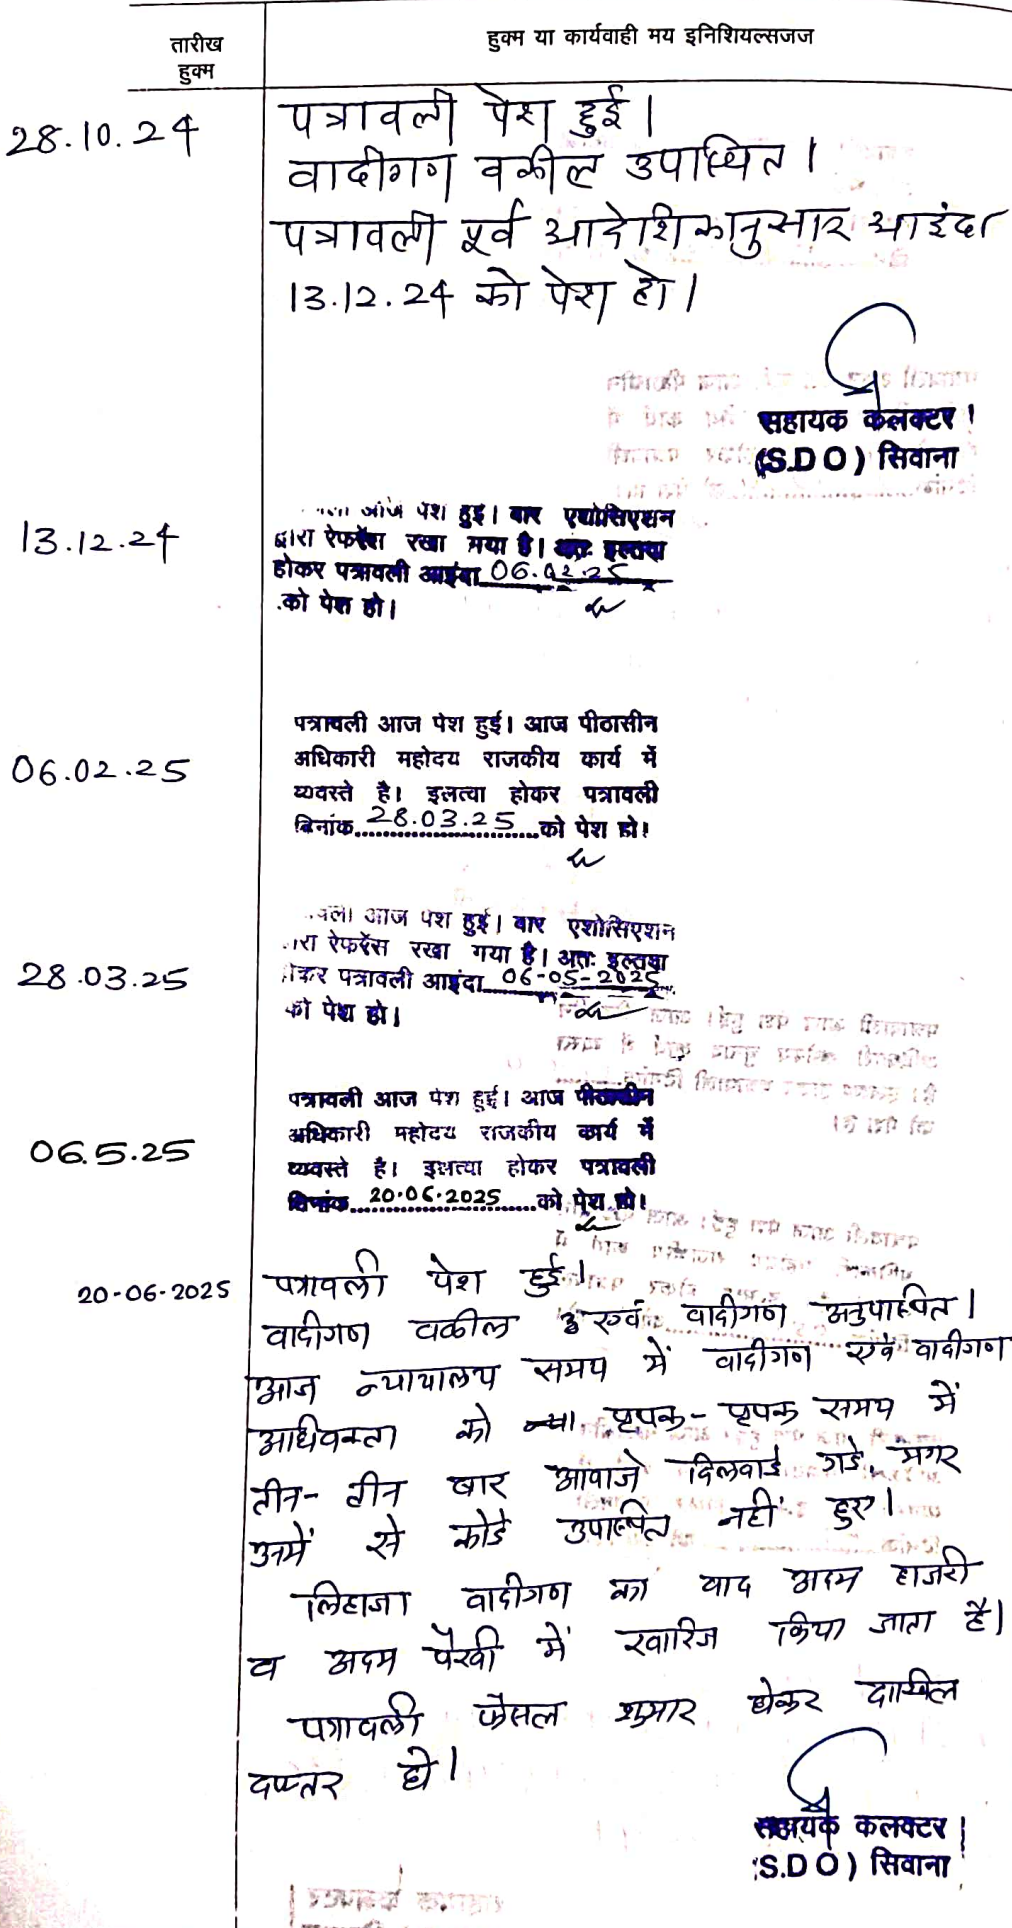 तारीख
हुक्म
हुक्म या कार्यवाही मय इनिशियल्सजज
28.10.24
पत्रावली पेश हुई।
वादीगण वकील उपास्थित।
पत्रावली पूर्व आदेशिकानुसार आइंदा
13.12.24 को पेश हो।
सहायक कलक्टर
(S.D O) सिवाना
13.12.24
आज पेश हुई। बार एशोसिएशन
द्वारा ऐफरेंस रखा गया है। अतः इल्तवा
होकर पत्रावली आइंदा 06.02.25
को पेश हो।
06.02.25
पत्रावली आज पेश हुई। आज पीठासीन
अधिकारी महोदय राजकीय कार्य में
व्यवस्ते है। इलत्वा होकर पत्रावली
दिनांक 28.03.25 को पेश हो।
28.03.25
वली आज पेश हुई। बार एशोसिएशन
ारा ऐफरेंस रखा गया है। अतः इल्तवा
होकर पत्रावली आइंदा 06-05-2025
को पेश हो।
06.5.25
पत्रावली आज पेश हुई। आज पीठासीन
अधिकारी महोदय राजकीय कार्य में
व्यवस्ते है। इलत्वा होकर पत्रावली
दिनांक 20.06.2025 को पेश हो।
20-06-2025
पत्रावली पेश हुई।
वादीगण वकील एवं वादीगण अनुपास्थित।
आज न्यायालय समय में वादीगण एवं वादीगण
अधिवक्ता को पृथक-पृथक समय में
तीन-तीन बार आवाजे दिलवाई गई, मगर
उनमें से कोई उपास्थित नहीं हुए।
लिहाजा वादीगण का वाद अदम हाजरी
व अदम पैरवी में खारिज किया जाता है।
पत्रावली फैसल शुमार होकर दाखिल
दफ्तर हो।
सहायक कलक्टर
(S.D O) सिवाना